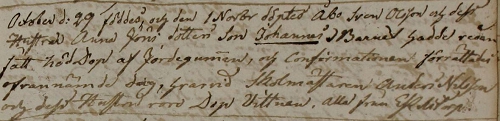 October d: 29 föddes, och den 1 Novbr döptes Åbo, Sven Olsson och dess
Hustrus Anna Jöns dotters Son Johannes, Barnet hade redan
fått nöd Dop af Jordegumman, och Confirmationen förrättades
ofvannämde dag, hvarvid Skolmästaren Anders Nilsson
och dess Hustru voro Dop Vittnen, alla från